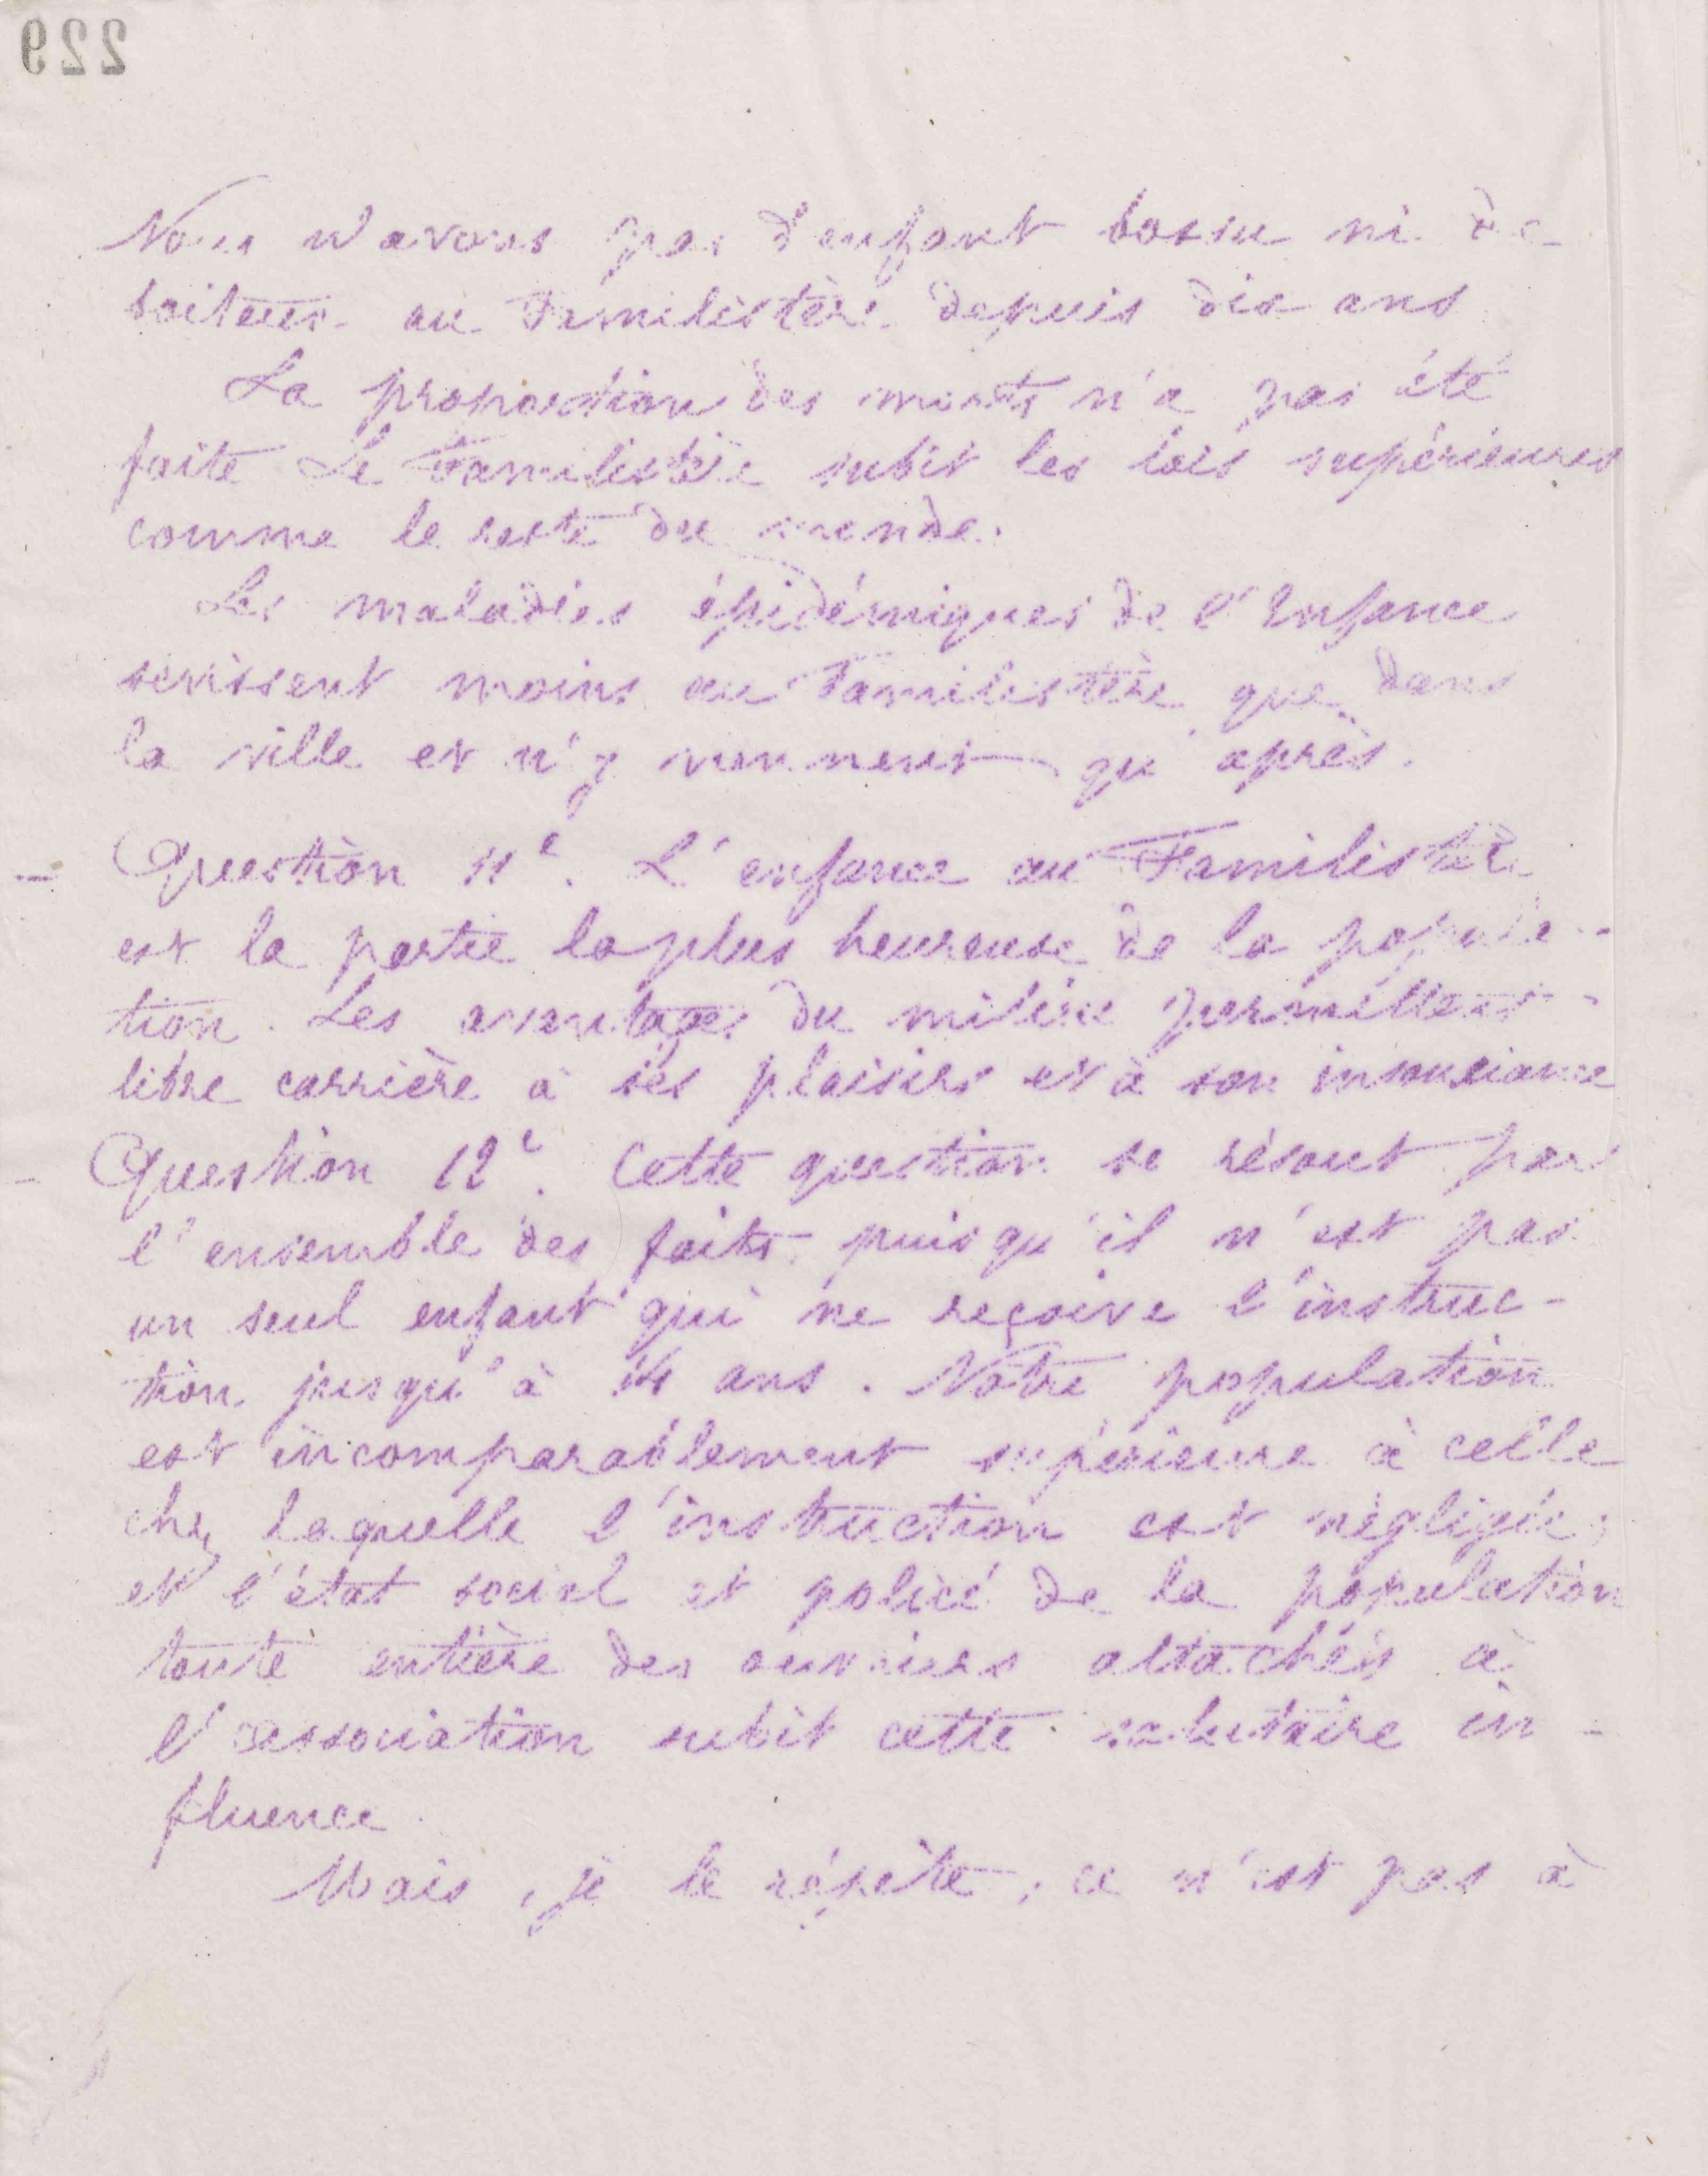 229
Nous n'avons pas d'enfant bossu ni de
boiteux au Familistère depuis dix ans
La proportion des morts n'a pas été
faite Le Familistère subit les lois supérieures
comme le reste du monde.
Les maladies épidémiques de l'Enfance
sevissent moins au Familistère que dans
la ville et n'y viennent qu'après.
Question 11e. L'enfance au Familistère
est la partie la plus heureuse de la popula-
tion. Les avantages du milieu permettent
libre carrière à ses plaisirs et à son insouciance
Question 12e. Cette question se résout par
l'ensemble des faits puisqu'il n'est pas
un seul enfant qui ne reçoive l'instruc-
tion jusqu'à 14 ans. Notre population
est incomparablement supérieure à celle
chez laquelle l'instruction est négligée,
et l'état social et policé de la population
toute entière des ouvriers attachés à
l'association subit cette salutaire in-
fluence.
Mais, je le répète, ce n'est pas à